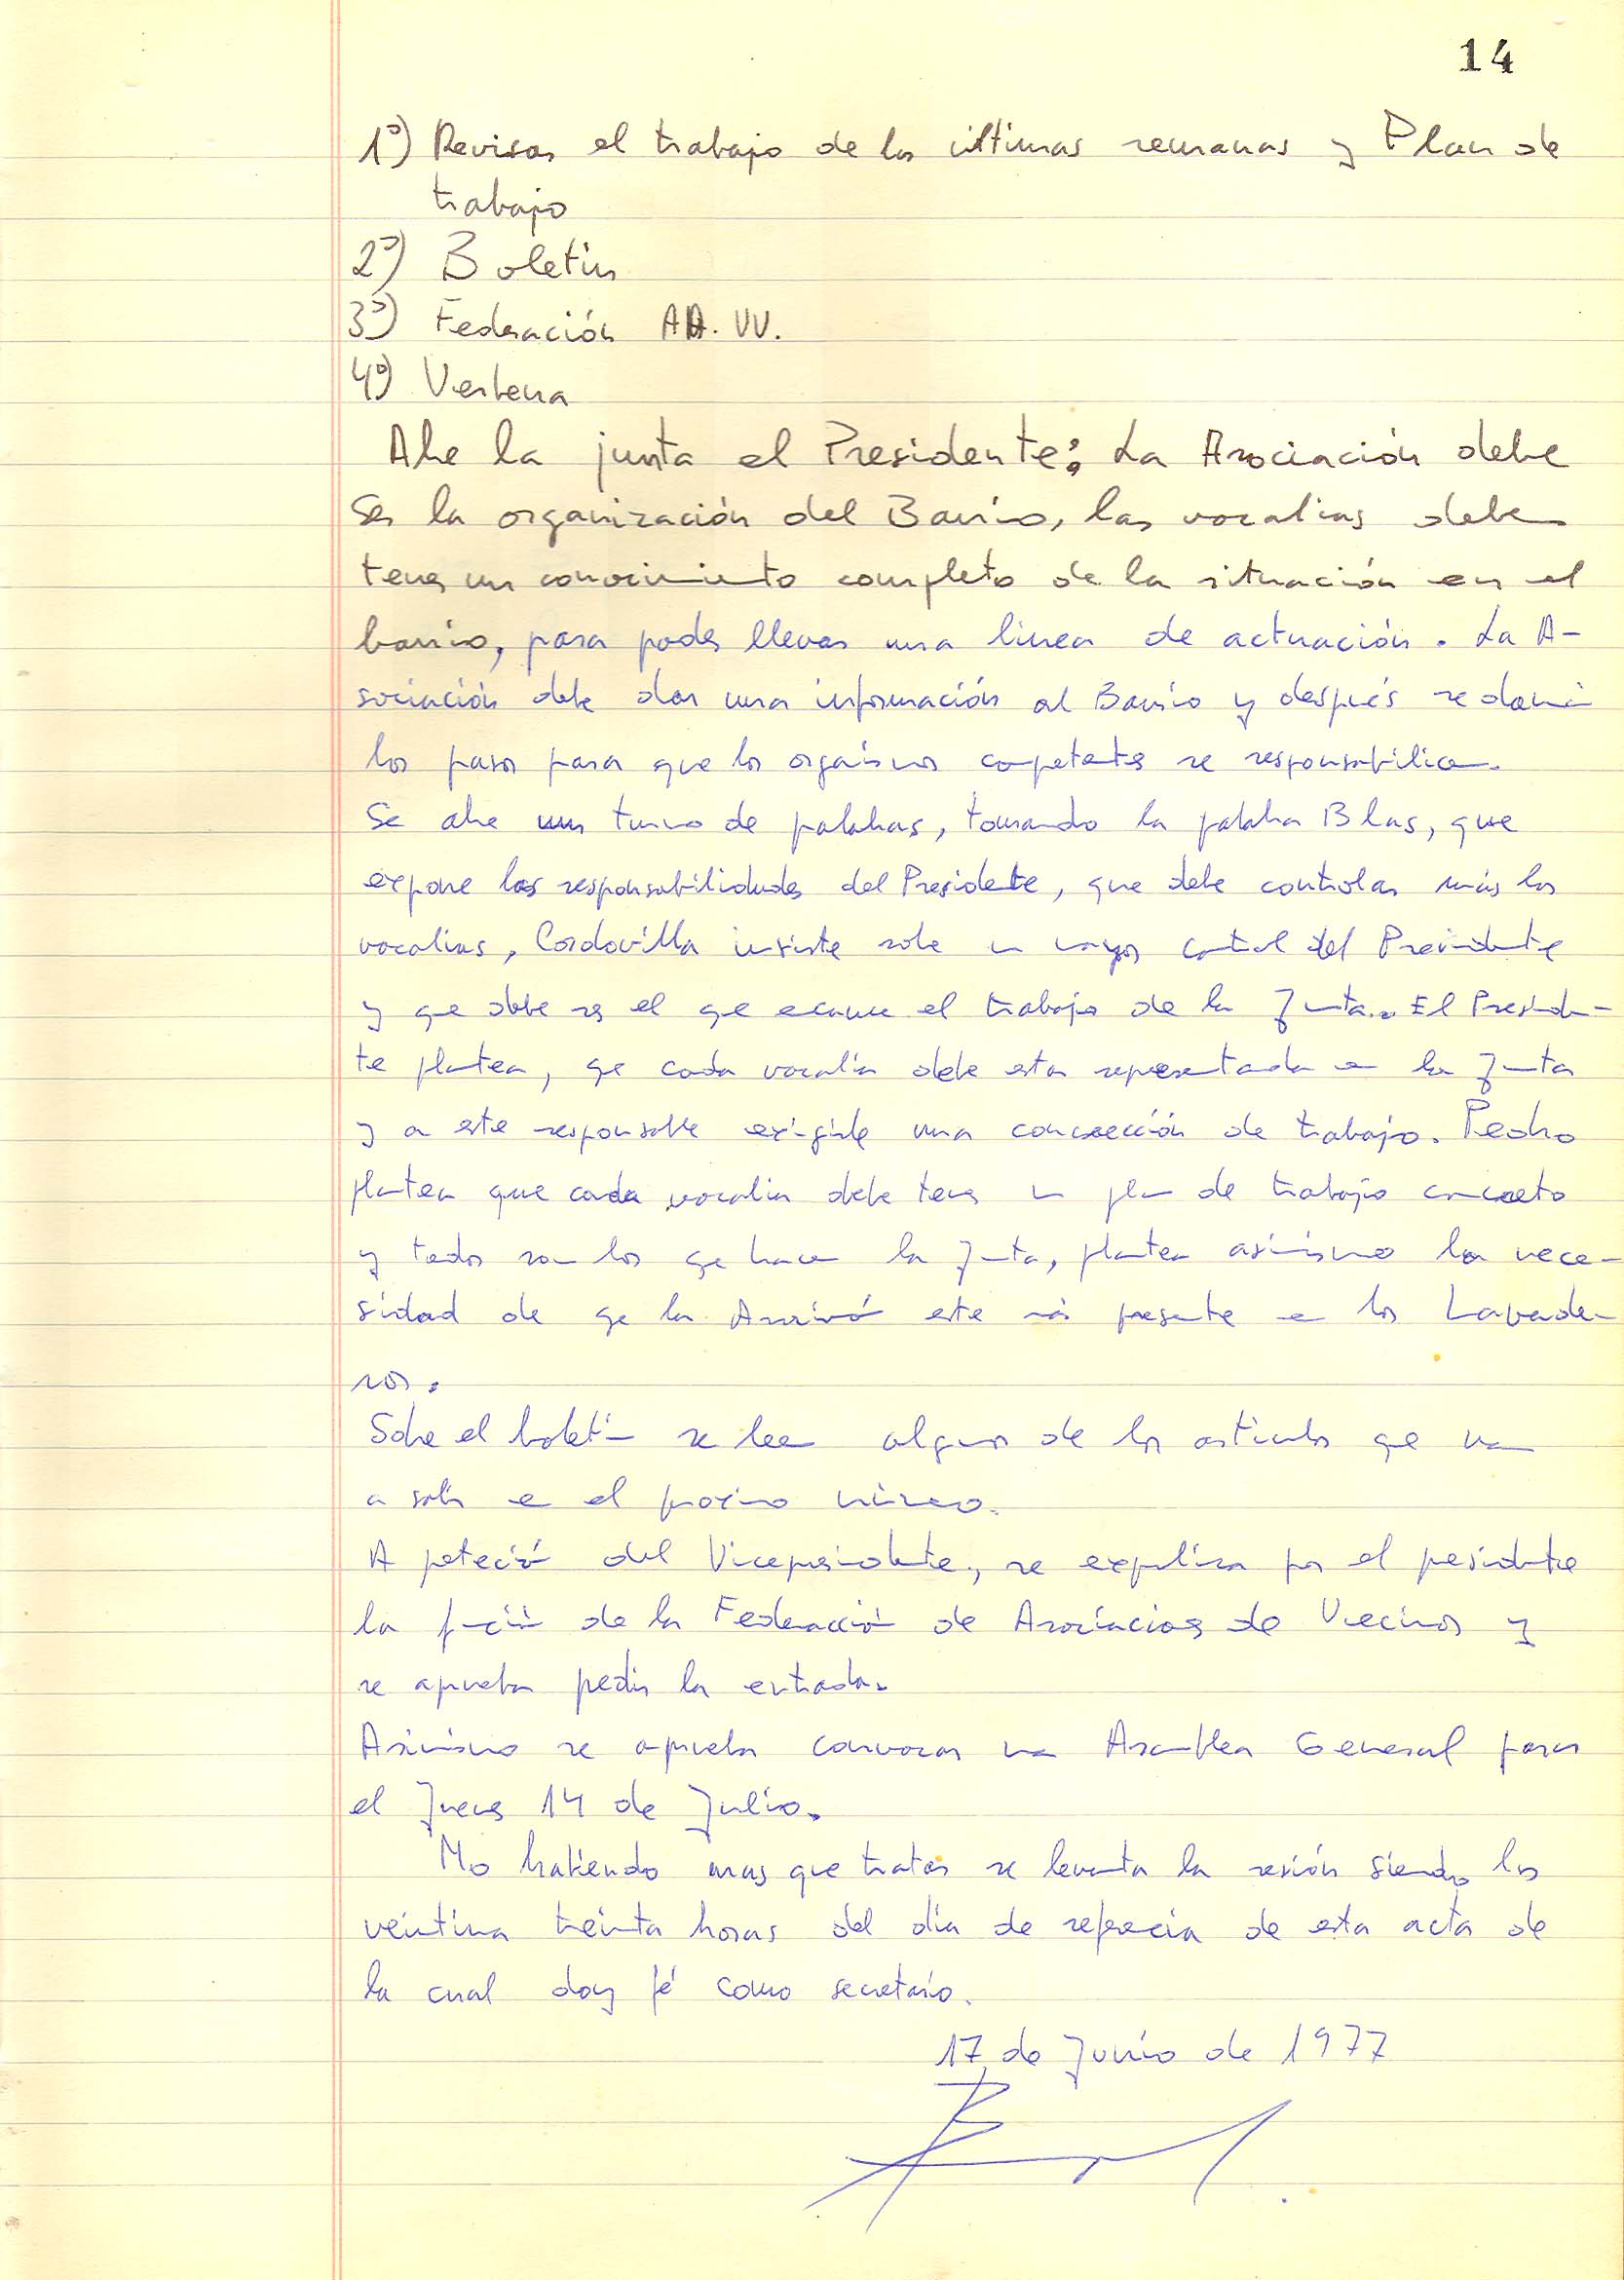 14
1º) Revisar el trabajo de las últimas semanas y Plan de
trabajo
2º) Boletín
3º) Federación AA. VV.
4º) Verbena
Abre la junta el Presidente: La Asociación debe
ser la organización del Barrio, las vocalias deben
tener un conocimiento completo de la situación en el
barrio, para poder llevar una linea de actuación. La A-
sociación debe dar una información al Barrio y después se daria
los pasos para que los organismos competentes se responsabilicen.
Se abre un turno de palabras, tomando la palabra Blas, que
expone las responsabilidades del Presidente, que debe controlar más las
vocalias, Cordovilla insiste sobre un mayor control del Presidente
y que debe ser el que encauce el trabajo de la Junta. El Presiden-
te plantea, que cada vocalia debe estar representada en la Junta
y a este responsable exigirle una concrección de trabajo. Pedro
plantea que cada vocalia debe tener un plan de trabajo concreto
y todos son los que hacen la Junta, plantea asimismo la nece-
sidad de que la Asociación este más presente en los Lavade-
ros.
Sobre el boletín se leen algunos de los articulos que van
a salir en el proximo número.
A peteción del Vicepresidente, se explica por el presidente
la función de la Federacción de Asociaciones de Vecinos y
se aprueba pedir la entrada.
Asimismo se aprueba convocar una Asamblea General para
el Jueves 14 de Julio.
No habiendo mas que tratar se levanta la sesión siendo las
veintiuna treinta horas del día de referencia de esta acta de
la cual doy fé como secretario.
17 de Junio de 1977